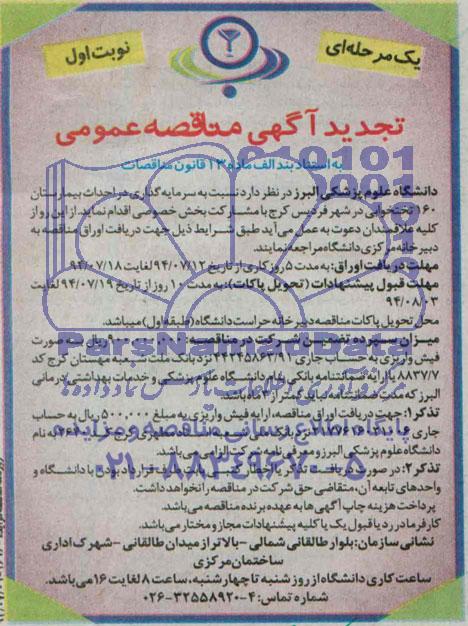 یک مرحله‌ای
نوبت اول
تجدید آگهی مناقصه عمومی
به استناد بند الف ماده ۱۳ قانون مناقصات
دانشگاه علوم پزشکی البرز در نظر دارد نسبت به سرمایه گذاری در احداث بیمارستان
۱۶۰ تختخوابی در شهر فردیس کرج با مشارکت بخش خصوصی اقدام نماید. از این رو از
کلیه علاقمندان دعوت به عمل می‌آید طبق شرایط ذیل جهت دریافت اوراق مناقصه به
دبیرخانه مرکزی دانشگاه مراجعه نمایند.
مهلت دریافت اوراق: به مدت ۵ روز کاری از تاریخ ۹۴/۰۷/۱۲ لغایت ۹۴/۰۷/۱۸
مهلت قبول پیشنهادات (تحویل پاکات): به مدت ۱۰ روز از تاریخ ۹۴/۰۷/۱۹ لغایت
۹۴/۰۸/۰۳
محل تحویل پاکات مناقصه دبیرخانه حراست دانشگاه (طبقه اول) میباشد.
میزان سپرده تضمین شرکت در مناقصه: ریال به صورت
فیش واریزی به حساب جاری نزد بانک ملت شعبه مهستان کرج کد
۸۸۳۷/۷ یا ارایه ضمانتنامه بانکی بنام دانشگاه علوم پزشکی و خدمات بهداشتی درمانی
البرز که مدت ضمانتنامه نباید کمتر از ۳ ماه باشد.
تذکر۱: جهت دریافت اوراق مناقصه، ارایه فیش واریزی به مبلغ ۵۰۰,۰۰۰ ریال به حساب
جاری نزد بانک ملی شعبه کرج به نام
دانشگاه علوم پزشکی البرز و معرفی نامه شرکت الزامی می‌باشد.
تذکر۲: در صورت دریافت تذکر یا اخطار کتبی طرف قرارداد بودن با دانشگاه و
واحدهای تابعه آن، متقاضی حق شرکت در مناقصه را نخواهد داشت.
پرداخت هزینه چاپ آگهی ها به عهده برنده مناقصه می‌باشد.
کارفرما در رد یا قبول یک یا کلیه پیشنهادات مجاز و مختار می‌باشد.
نشانی سازمان: بلوار طالقانی شمالی - بالاتر از میدان طالقانی - شهرک اداری
ساختمان مرکزی
ساعت کاری دانشگاه از روز شنبه تا چهارشنبه، ساعت ۸ لغایت ۱۶ می‌باشد.
شماره تماس: ۴-۳۲۵۵۸۹۲۰-۰۲۶
ParsNamadData
پایگاه اطلاع رسانی مناقصه و مزایده
۰۲۱-۸۸۳۴۹۶۷۰-۵